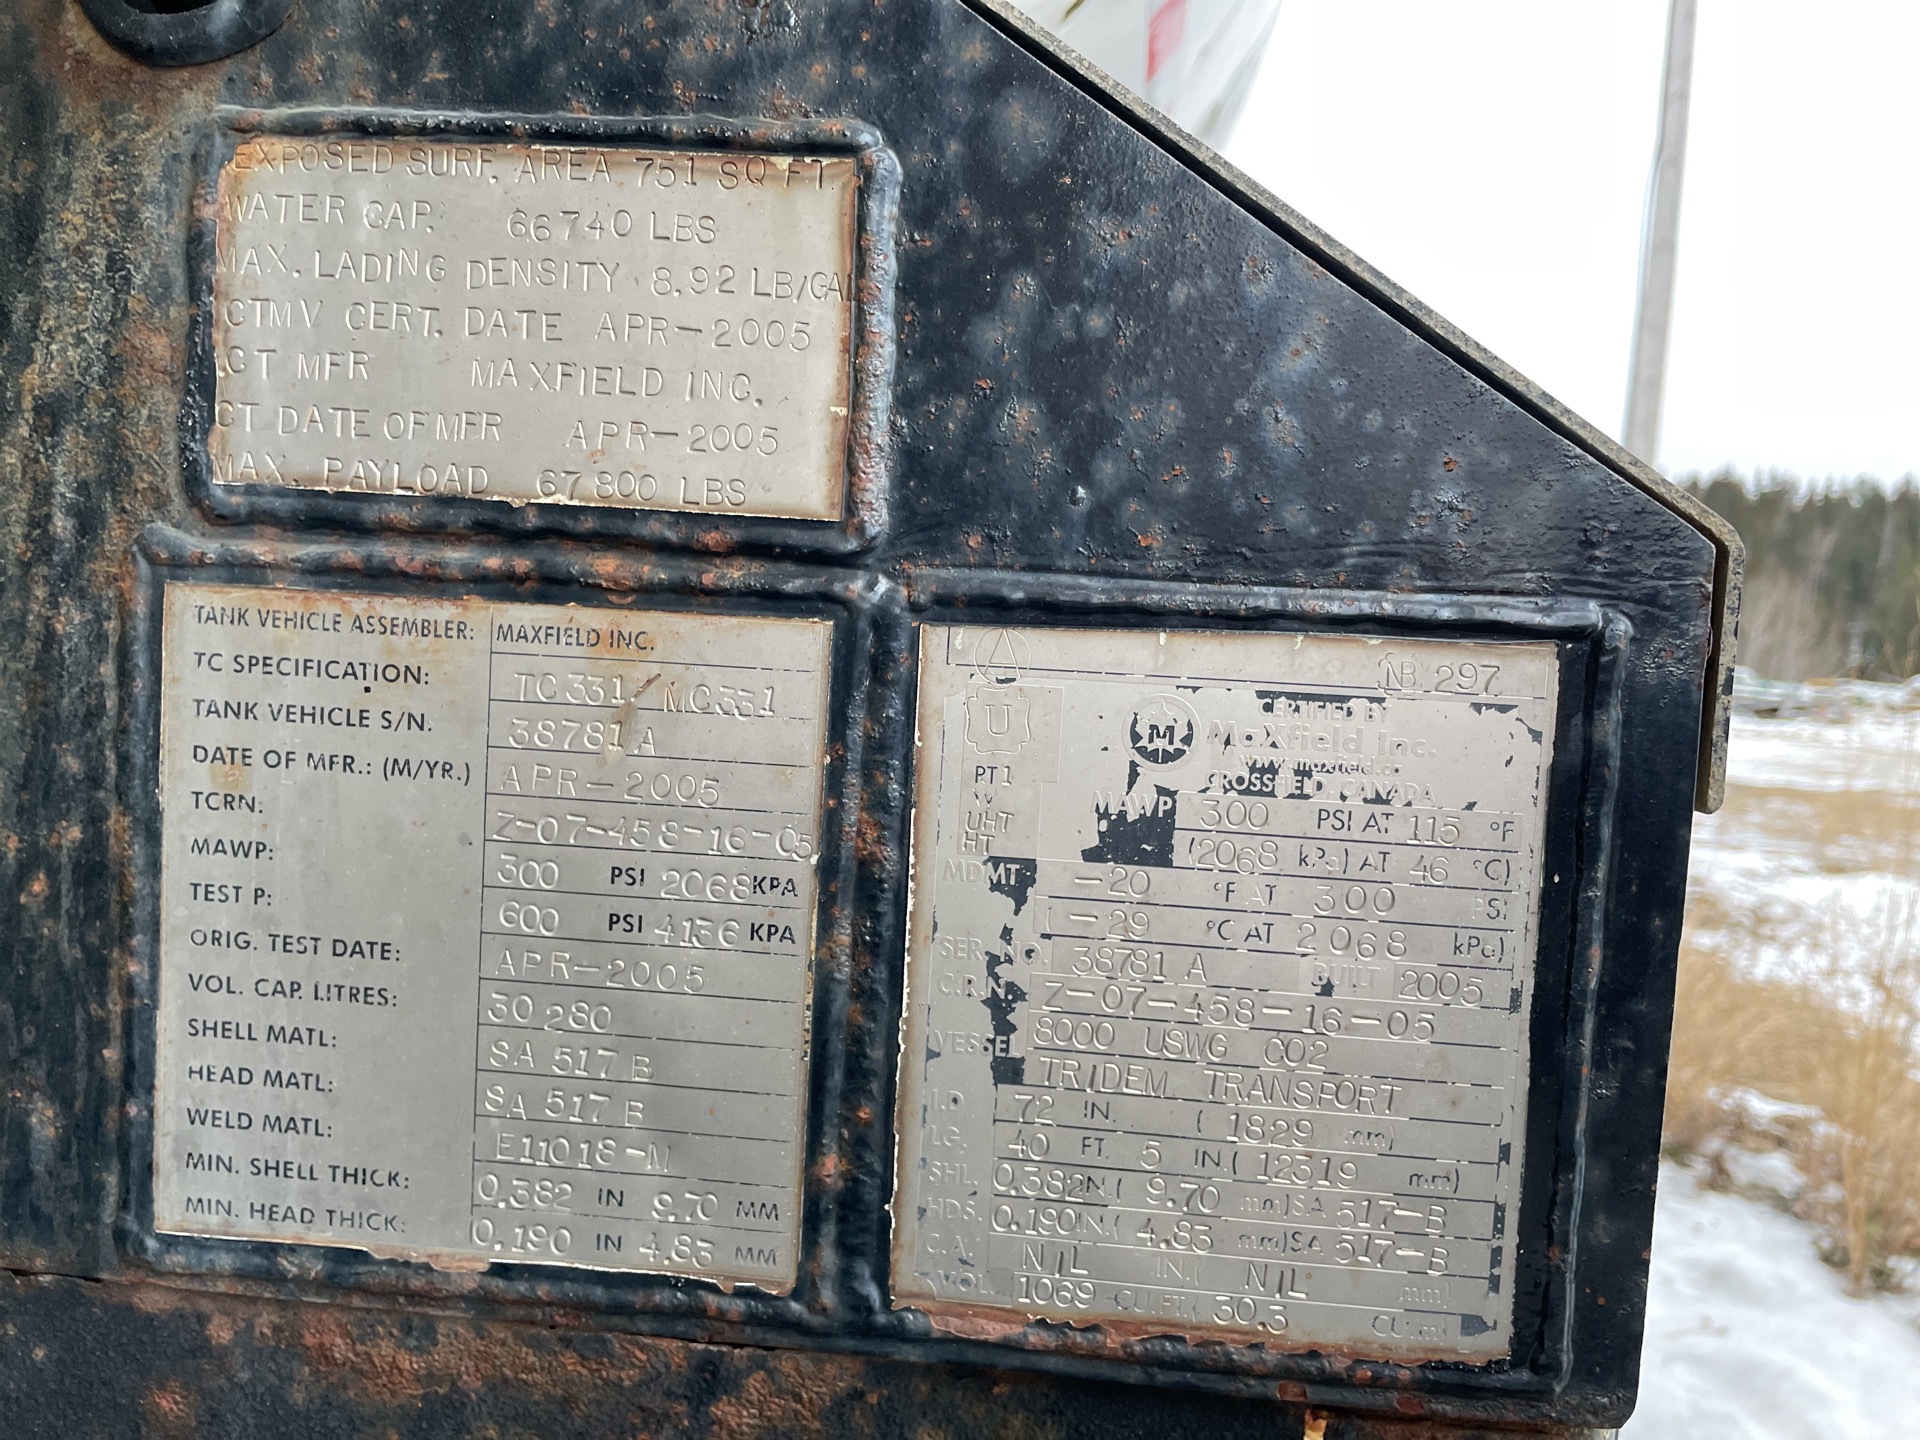 EXPOSED SURF. AREA 751 SQ FT.
WATER CAP. 66740 LBS
MAX. LADING DENSITY 8.92 LB/GAL
CTMV CERT. DATE APR-2005
CT MFR MAXFIELD INC.
CT DATE OF MFR APR-2005
MAX. PAYLOAD 67800 LBS
TANK VEHICLE ASSEMBLER: MAXFIELD INC.
TC SPECIFICATION: TC331/MC331
TANK VEHICLE S/N: 38781A
DATE OF MFR.: (M/YR.) APR-2005
TCRN: Z-07-458-16-05
MAWP: 300 PSI 2068 KPA
TEST P: 600 PSI 4136 KPA
ORIG. TEST DATE: APR-2005
VOL. CAP. LITRES: 30280
SHELL MATL: SA 517 B
HEAD MATL: SA 517 B
WELD MATL: E11018-M
MIN. SHELL THICK: 0.382 IN 9.70 MM
MIN. HEAD THICK: 0.190 IN 4.83 MM
A
NB 297
U
CERTIFIED BY
M Maxfield Inc.
www.maxfield.ca
CROSSFIELD, CANADA
PT1
W
UHT
HT
MAWP 300 PSI AT 115 °F
(2068 kPa) AT 46 °C)
MDMT -20 °F AT 300 PSI
( -29 °C AT 2068 kPa)
SER. NO. 38781 A BUILT 2005
C.R.N. Z-07-458-16-05
VESSEL 8000 USWG CO2
TRIDEM TRANSPORT
I.D. 72 IN. ( 1829 mm)
LG. 40 FT. 5 IN.( 12319 mm)
SHL. 0.382IN.( 9.70 mm)SA 517-B
HDS. 0.190IN.( 4.83 mm)SA 517-B
C.A. NIL IN.( NIL mm)
VOL. 1069 CU.FT.( 30.3 CU.m)